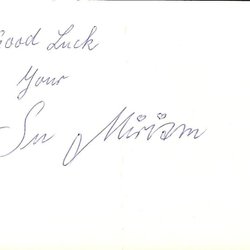 Good Luck
Your
Miriam